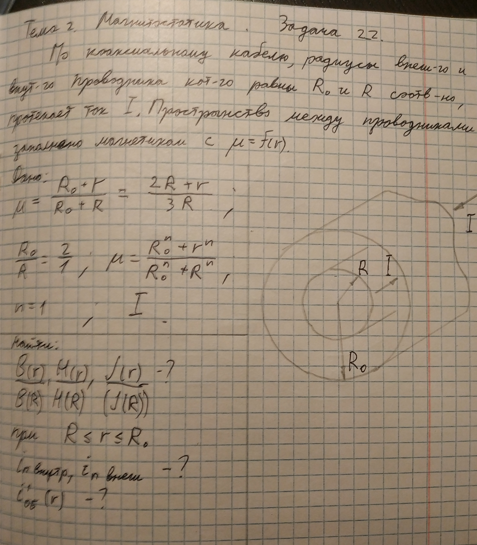 Тема 2. Магнитостатика. Задача 2.2.
По коаксиальному кабелю, радиусы внеш-го и
внут-го проводника кот-го равны R₀ и R соотв-но,
протекает ток I. Пространство между проводниками
заполнено магнетиком с μ = f(r).
Дано:
μ = (R₀ + r)/(R₀ + R) = (2R + r)/(3R) ;
R₀/R = 2/1 ; μ = (R₀ⁿ + rⁿ)/(R₀ⁿ + Rⁿ) ;
n = 1 ; I .
Найти:
B(r)/B(R), H(r)/H(R), J(r)/(J(R)) - ?
при R ≤ r ≤ R₀
i'п внутр, i'п внеш - ?
i'об (r) - ?
I
R I
R₀